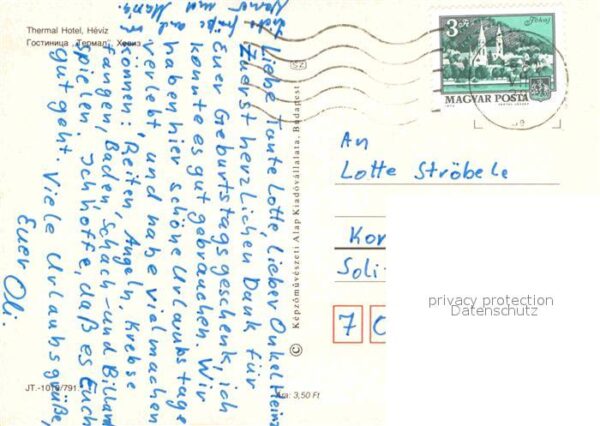 Thermal Hotel, Hévíz
Гостиница „Термал” Хевиз
Liebe Tante Lotte, lieber Onkel Heinz
Zuerst herzlichen Dank für
Euer Geburtstagsgeschenk, ich
konnte es gut gebrauchen. Wir
haben hier schöne Urlaubstage
verlebt, und habe vial machen
können: Reiten, Angeln, Krebse
fangen, Baden, Schach- und Billard
spielen. Ich hoffe, daß es Euch
gut geht. Viele Urlaubsgrüße,
Euer Oli.
JT.-1019/791.
Ára: 3,50 Ft
© Képzőművészeti Alap Kiadóvállalata, Budapest
SZ
3 Ft
Tokaj
MAGYAR POSTA
An
Lotte Ströbele
Kor
Soli
7
privacy protection
Datenschutz